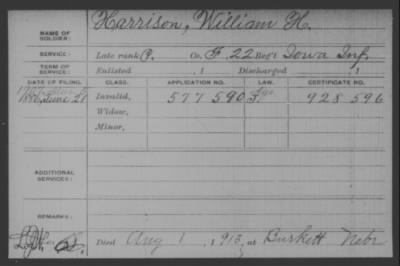 NAME OF SOLDIER: Harrison, William H.
SERVICE: Late rank P. Co. F, 22 Reg't Iowa Inf.
TERM OF SERVICE: Enlisted , 1 Discharged , 1
DATE OF FILING. CLASS. APPLICATION NO. LAW. CERTIFICATE NO.
1886, June 21 Invalid, 577 590 928 596
Widow,
Minor,
ADDITIONAL SERVICES:
REMARKS:
Died Aug 1, 1913, at Burkett Nebr